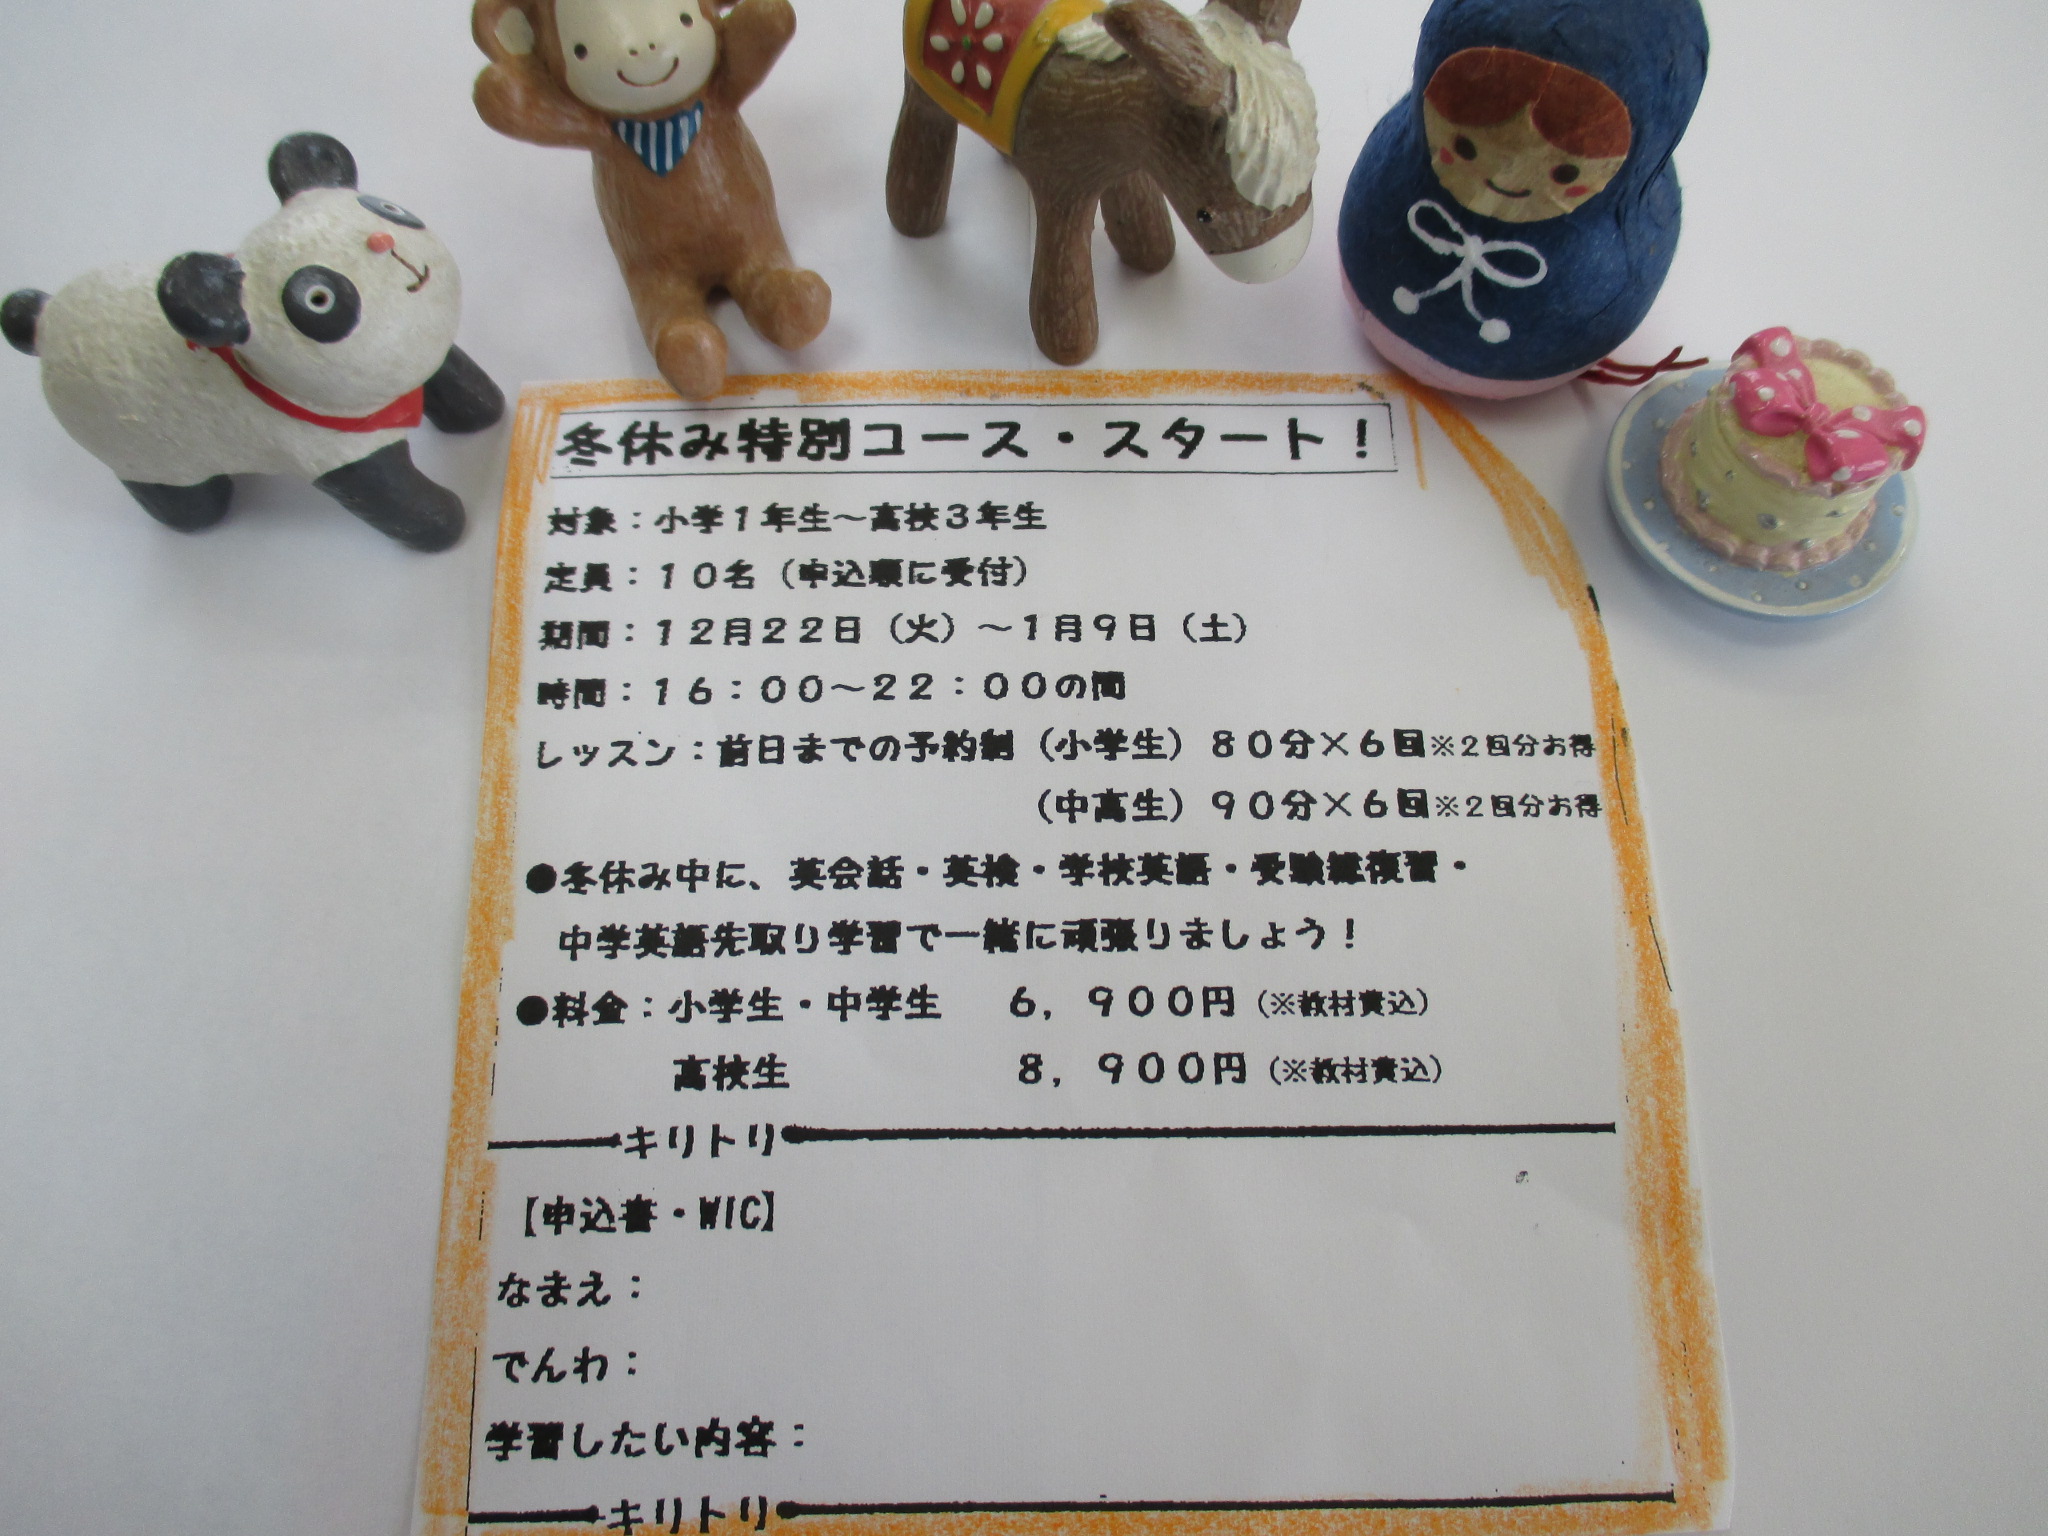 冬休み特別コース・スタート！
対象：小学１年生～高校３年生
定員：１０名（申込順に受付）
期間：１２月２２日（火）～１月９日（土）
時間：１６：００～２２：００の間
レッスン：前日までの予約制（小学生）８０分×６回※２回分お得
（中高生）９０分×６回※２回分お得
●冬休み中に、英会話・英検・学校英語・受験総復習・
中学英語先取り学習で一緒に頑張りましょう！
●料金：小学生・中学生　６，９００円（※教材費込）
高校生　８，９００円（※教材費込）
キリトリ
【申込書・WIC】
なまえ：
でんわ：
学習したい内容：
キリトリ